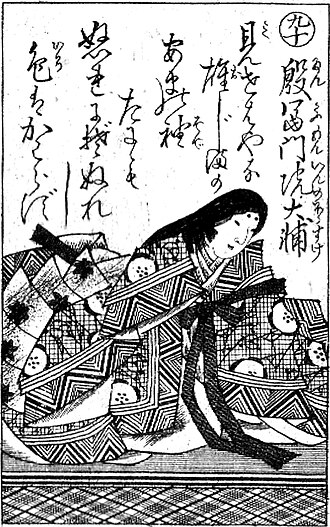 九十
殷冨門院大輔
見せばやな
雄じまの
あまの袖
だにも
ぬれにぞぬれ
し
色はかはらず